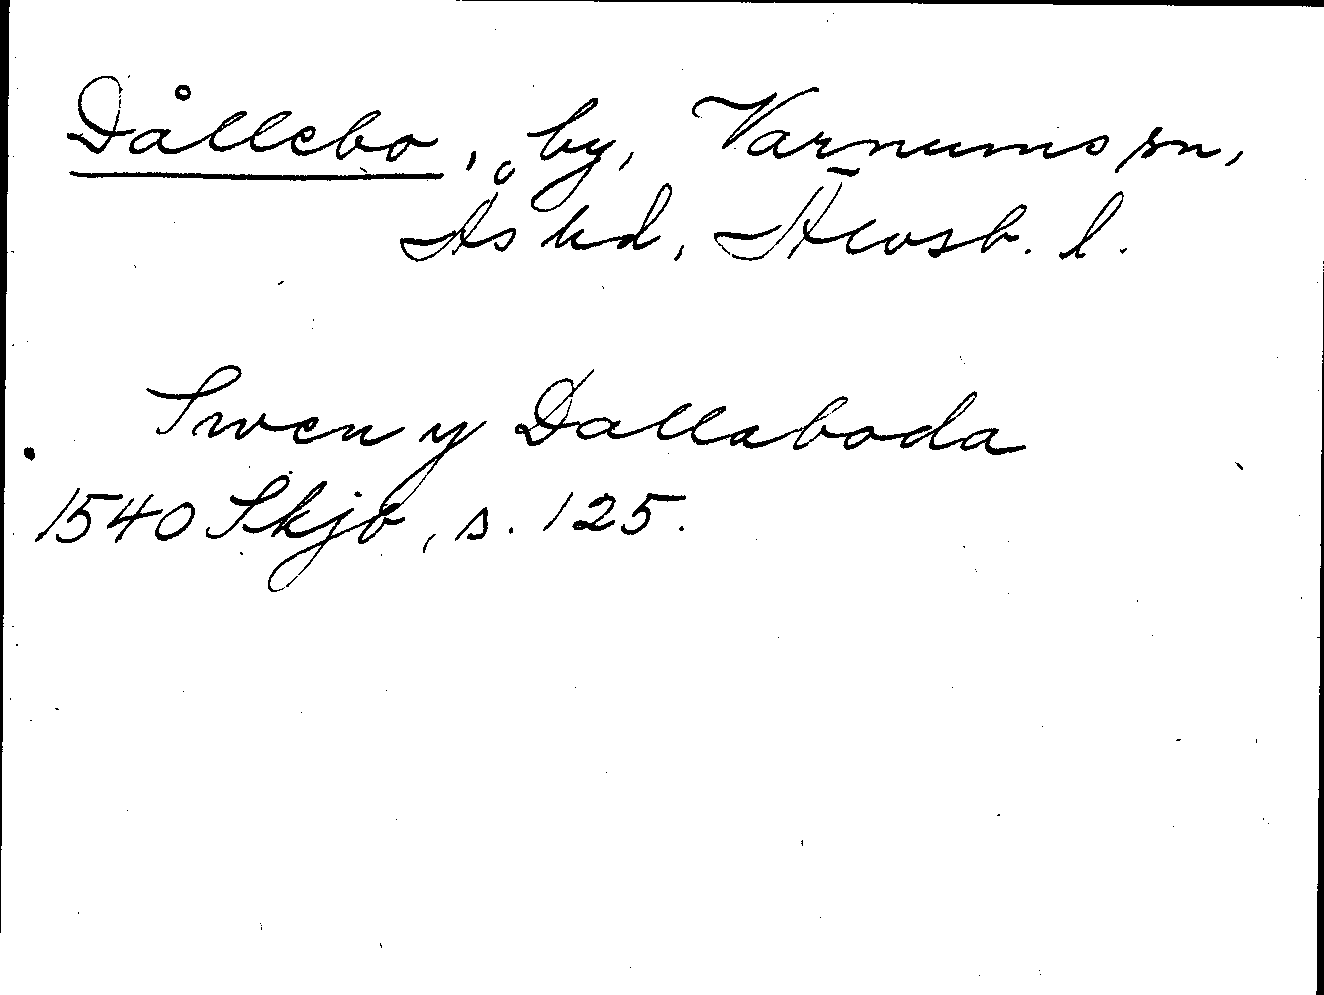 Dållebo, by, Varnums sn,
Ås hd, Älvsb. l.
Swen y Dallaboda
1540 Skjb, s. 125.